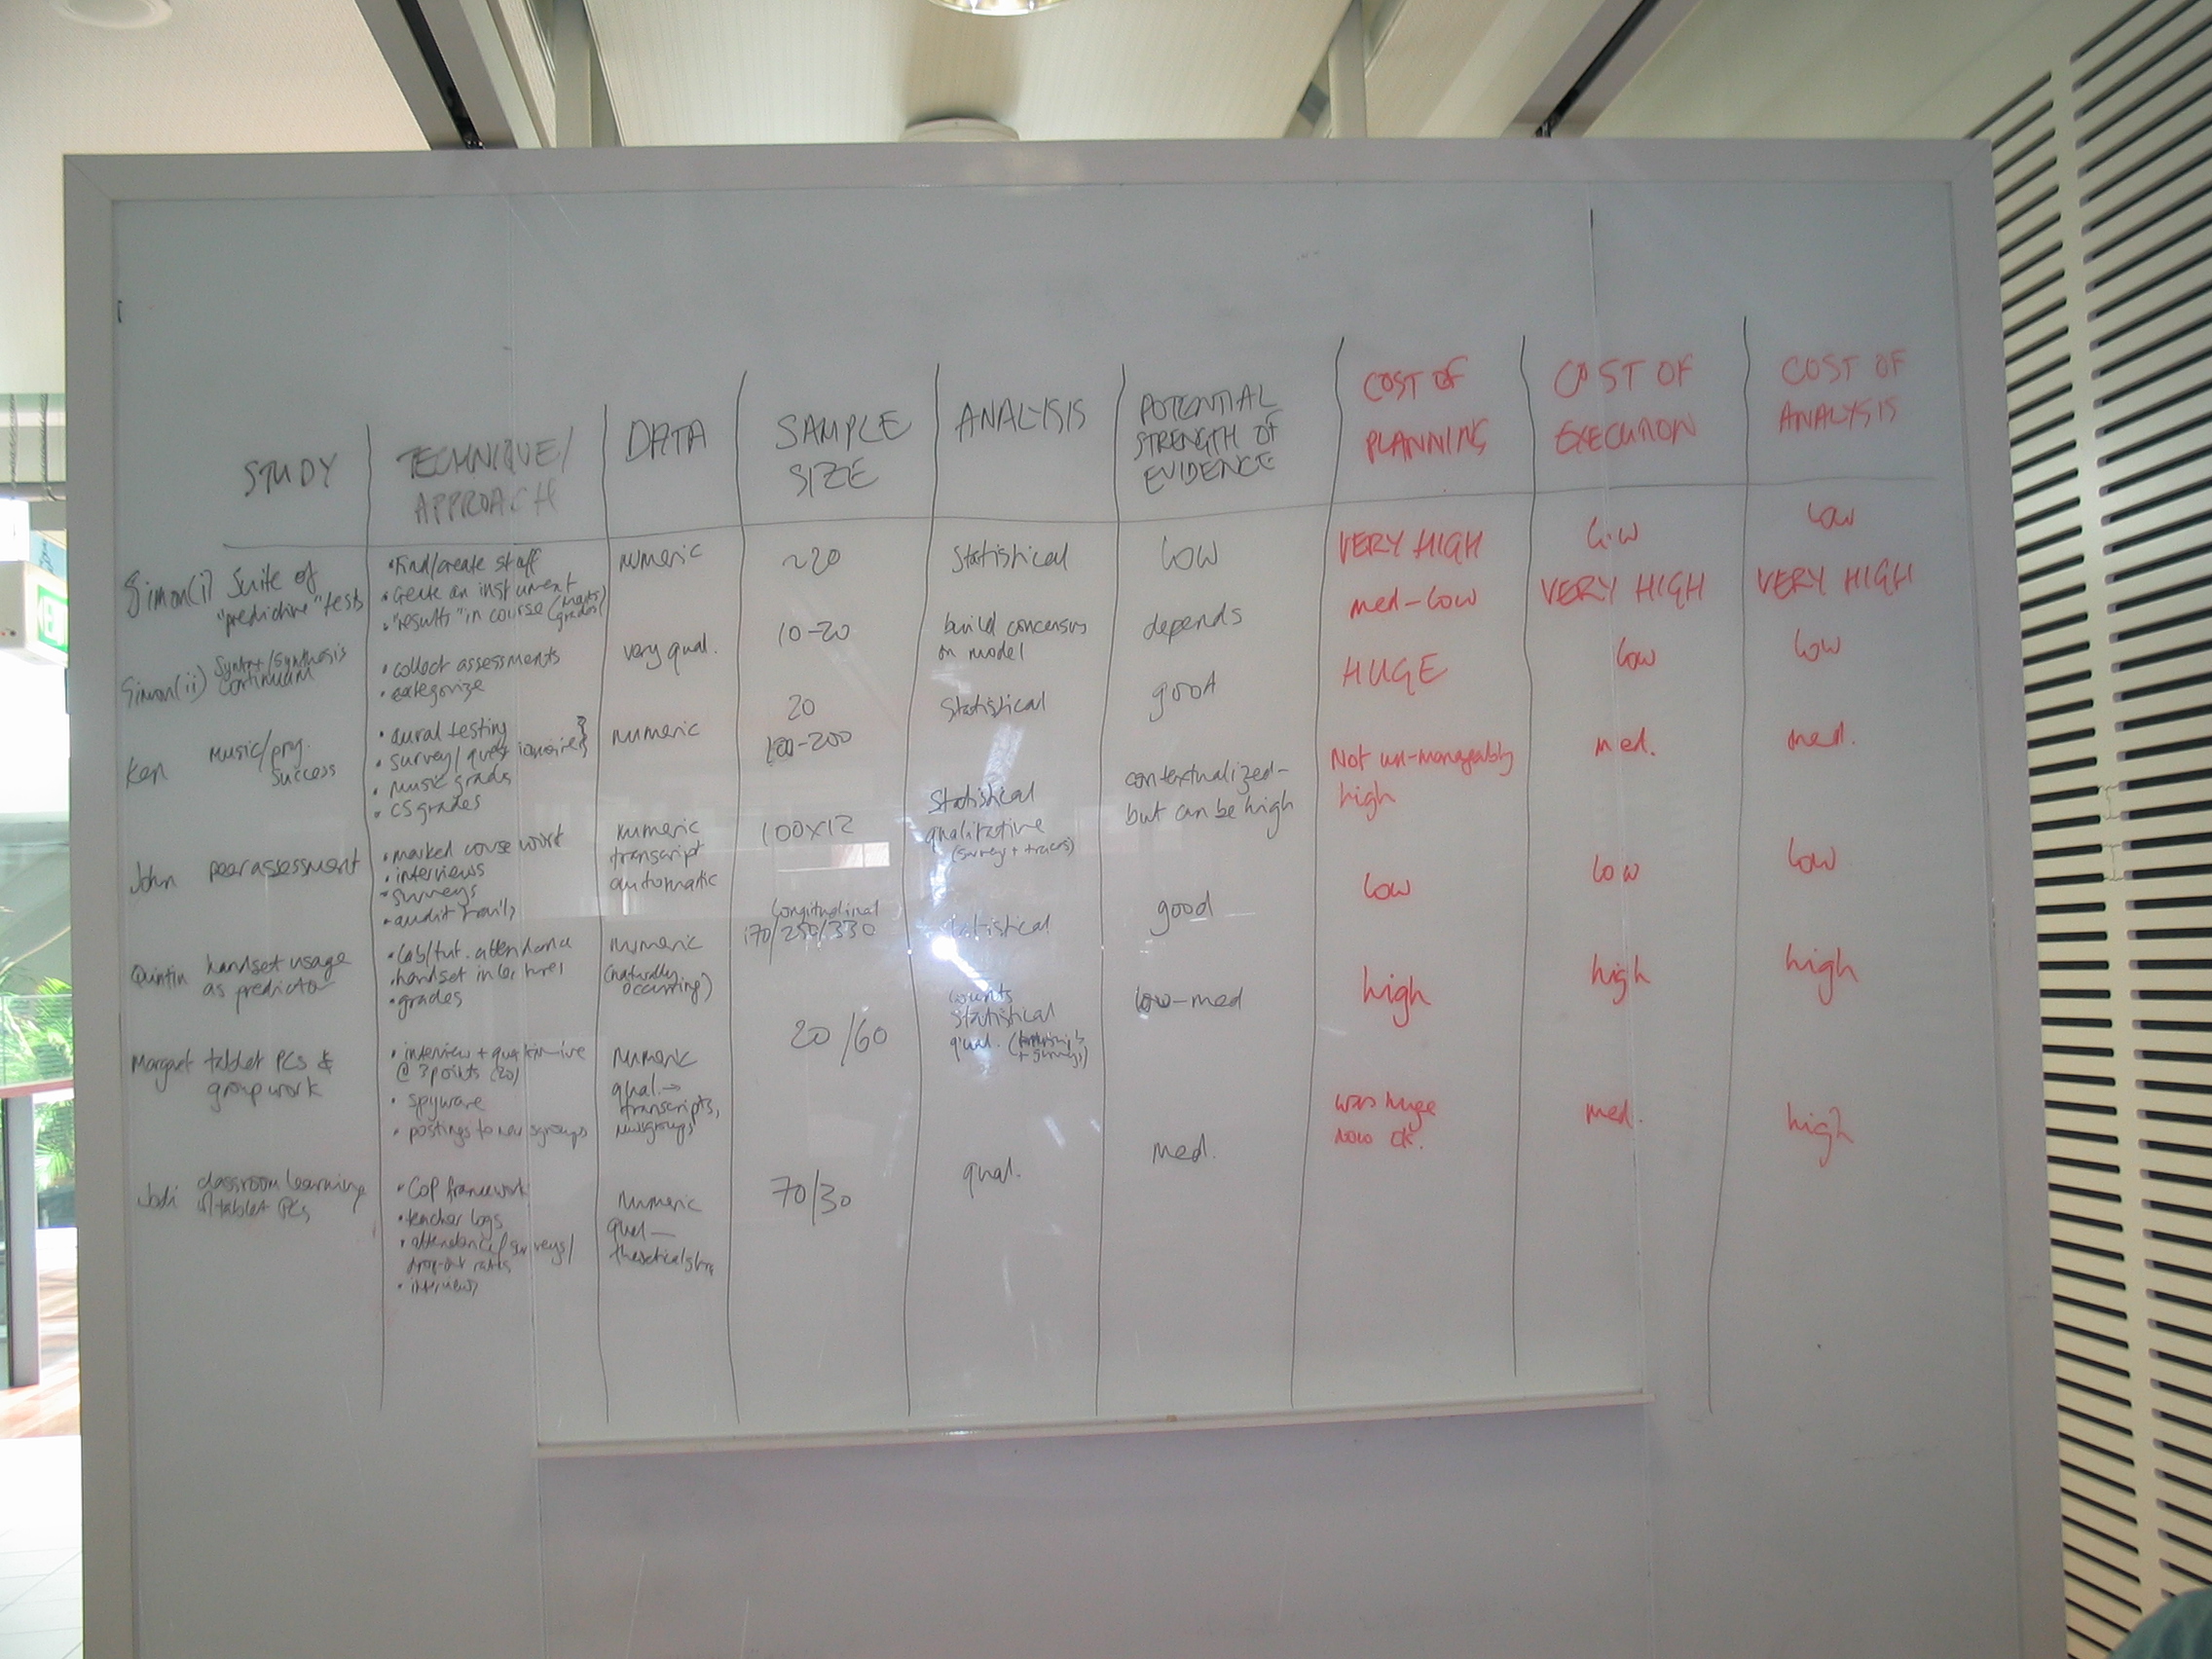 STUDY
TECHNIQUE/
APPROACH
DATA
SAMPLE
SIZE
ANALYSIS
POTENTIAL
STRENGTH OF
EVIDENCE
COST OF
PLANNING
COST OF
EXECUTION
COST OF
ANALYSIS
Simon(i) Suite of
"predictive" tests
• Find/create stuff
• Create an instrument
• "results" in course (marks/
grades)
numeric
~20
Statistical
LOW
VERY HIGH
low
low
Simon(ii) Syntax/Synthesis
Continuum
• collect assessments
• categorize
very qual.
10-20
build consensus
on model
depends
med-low
VERY HIGH
VERY HIGH
Ken Music/prg.
Success
• aural testing
• survey/questionnaire }
• music grads
• CS grades
numeric
20
100-200
Statistical
good
HUGE
low
low
John peer assessment
• marked course work
• interviews
• surveys
• audit trails
numeric
transcript
automatic
100x12
Statistical
qualitative
(survey + traces)
contextualized-
but can be high
Not un-manageably
high
med.
med.
Quintin handset usage
as predictor
• lab/tut. attendance
• handset in lectures
• grades
numeric
(naturally
occurring)
longitudinal
170/250/330
statistical
good
low
low
low
Margaret tablet PCs &
groupwork
• interview + questionnaire
@ 3points (20)
• spyware
• postings to newsgroups
numeric
qual.→
transcripts,
newsgroups
20/60
counts
Statistical
qual. ( + surveys)
low-med
high
high
high
Jodi classroom learning
w/tablet PCs
• CoP framework
• teacher logs
• attendance/surveys/
drop-out rates
• interviews
numeric
qual—
70/30
qual.
med.
was huge
now ok.
med.
high